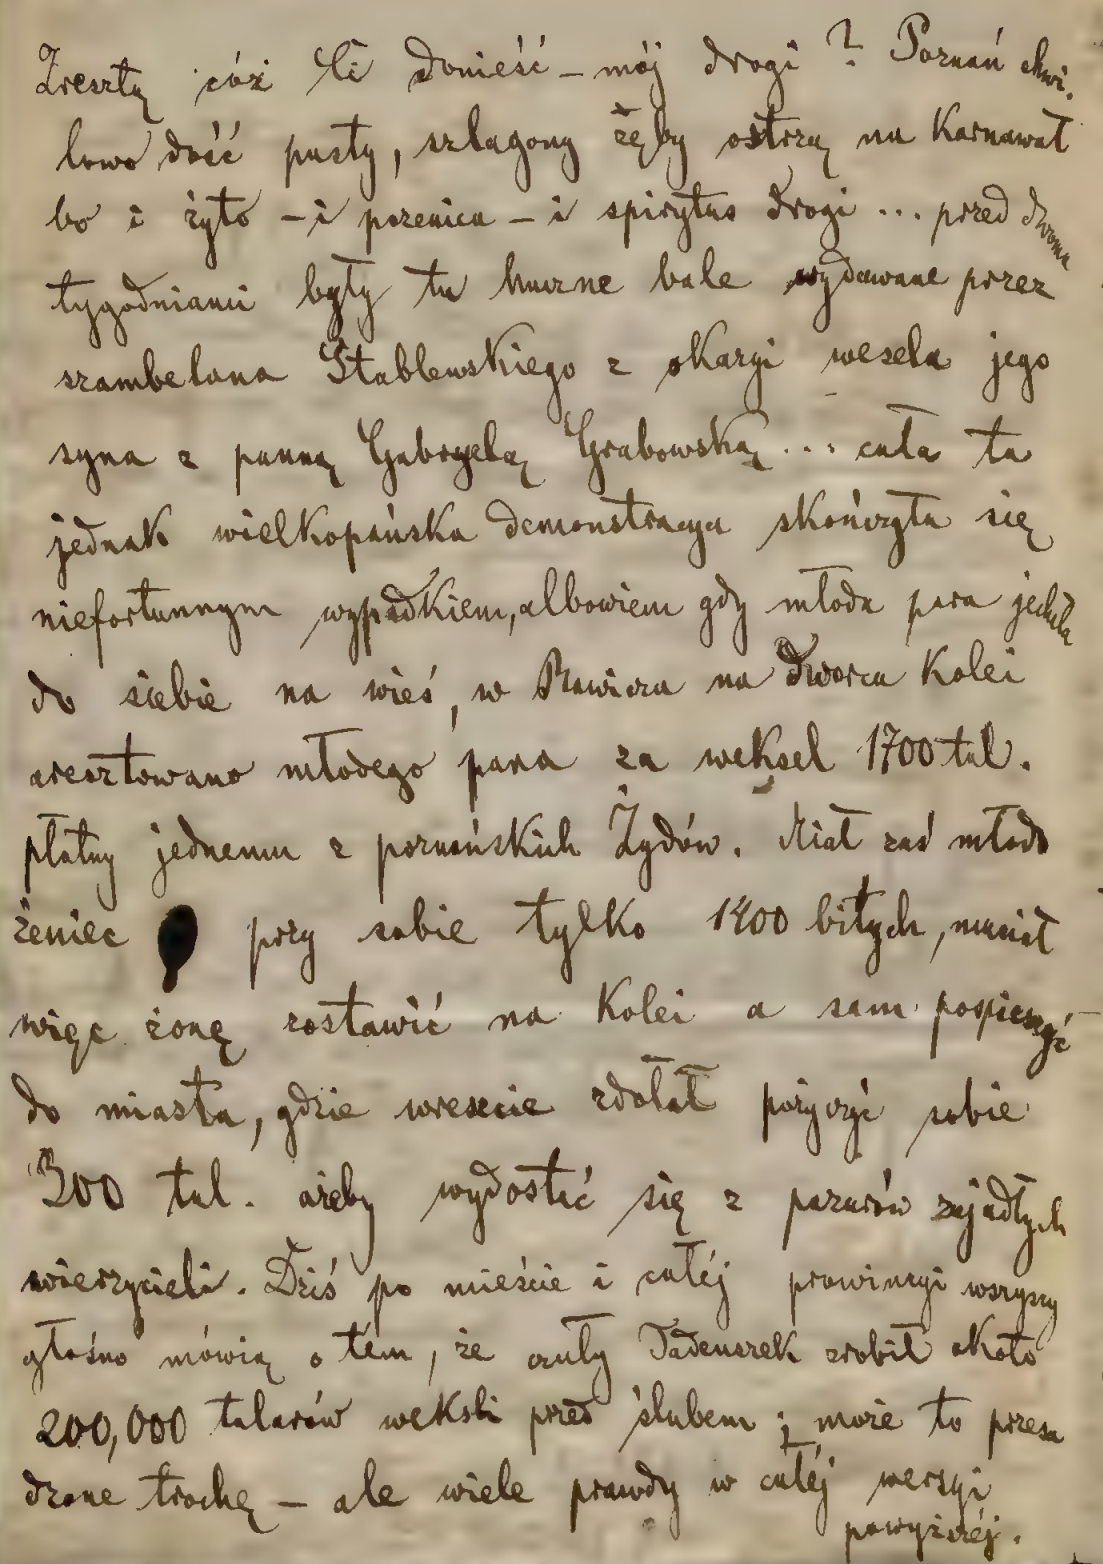 Zresztą cóż Ci donieść – mój drogi? Poznań chwi-
lowo dość pusty, szlagony zęby ostrzą na Karnawał
bo i żyto – i pszenica – i spirytus drogi ... przed dwoma
tygodniami były tu huczne bale wydawane przez
szambelana Stablewskiego z okazyi wesela jego
syna z panną Gabryelą Grabowską ... cała ta
jednak wielkopańska demonstracya skończyła się
niefortunnym wypadkiem, albowiem gdy młoda para jechała
do siebie na wieś, w Rawiczu na dworcu Kolei
aresztowano młodego pana za weksel 1700 tal.
płatny jednemu z poznańskich Żydów. Miał zaś młodo
żeniec przy sobie tylko 1400 bitych, musiał
więc żonę zostawić na Kolei a sam pospieszyć
do miasta, gdzie wreszcie zdołał pożyczyć sobie
300 tal. ażeby wydostać się z pazurów zajadłych
wierzycieli. Dziś po mieście i całéj prowincyi wszyscy
głośno mówią o tém, że czuły Tadeuszek zrobił około
200,000 talarów weksli przed ślubem; może to przesa
dzone trochę – ale wiele prawdy w całéj wersyi
powyższéj.